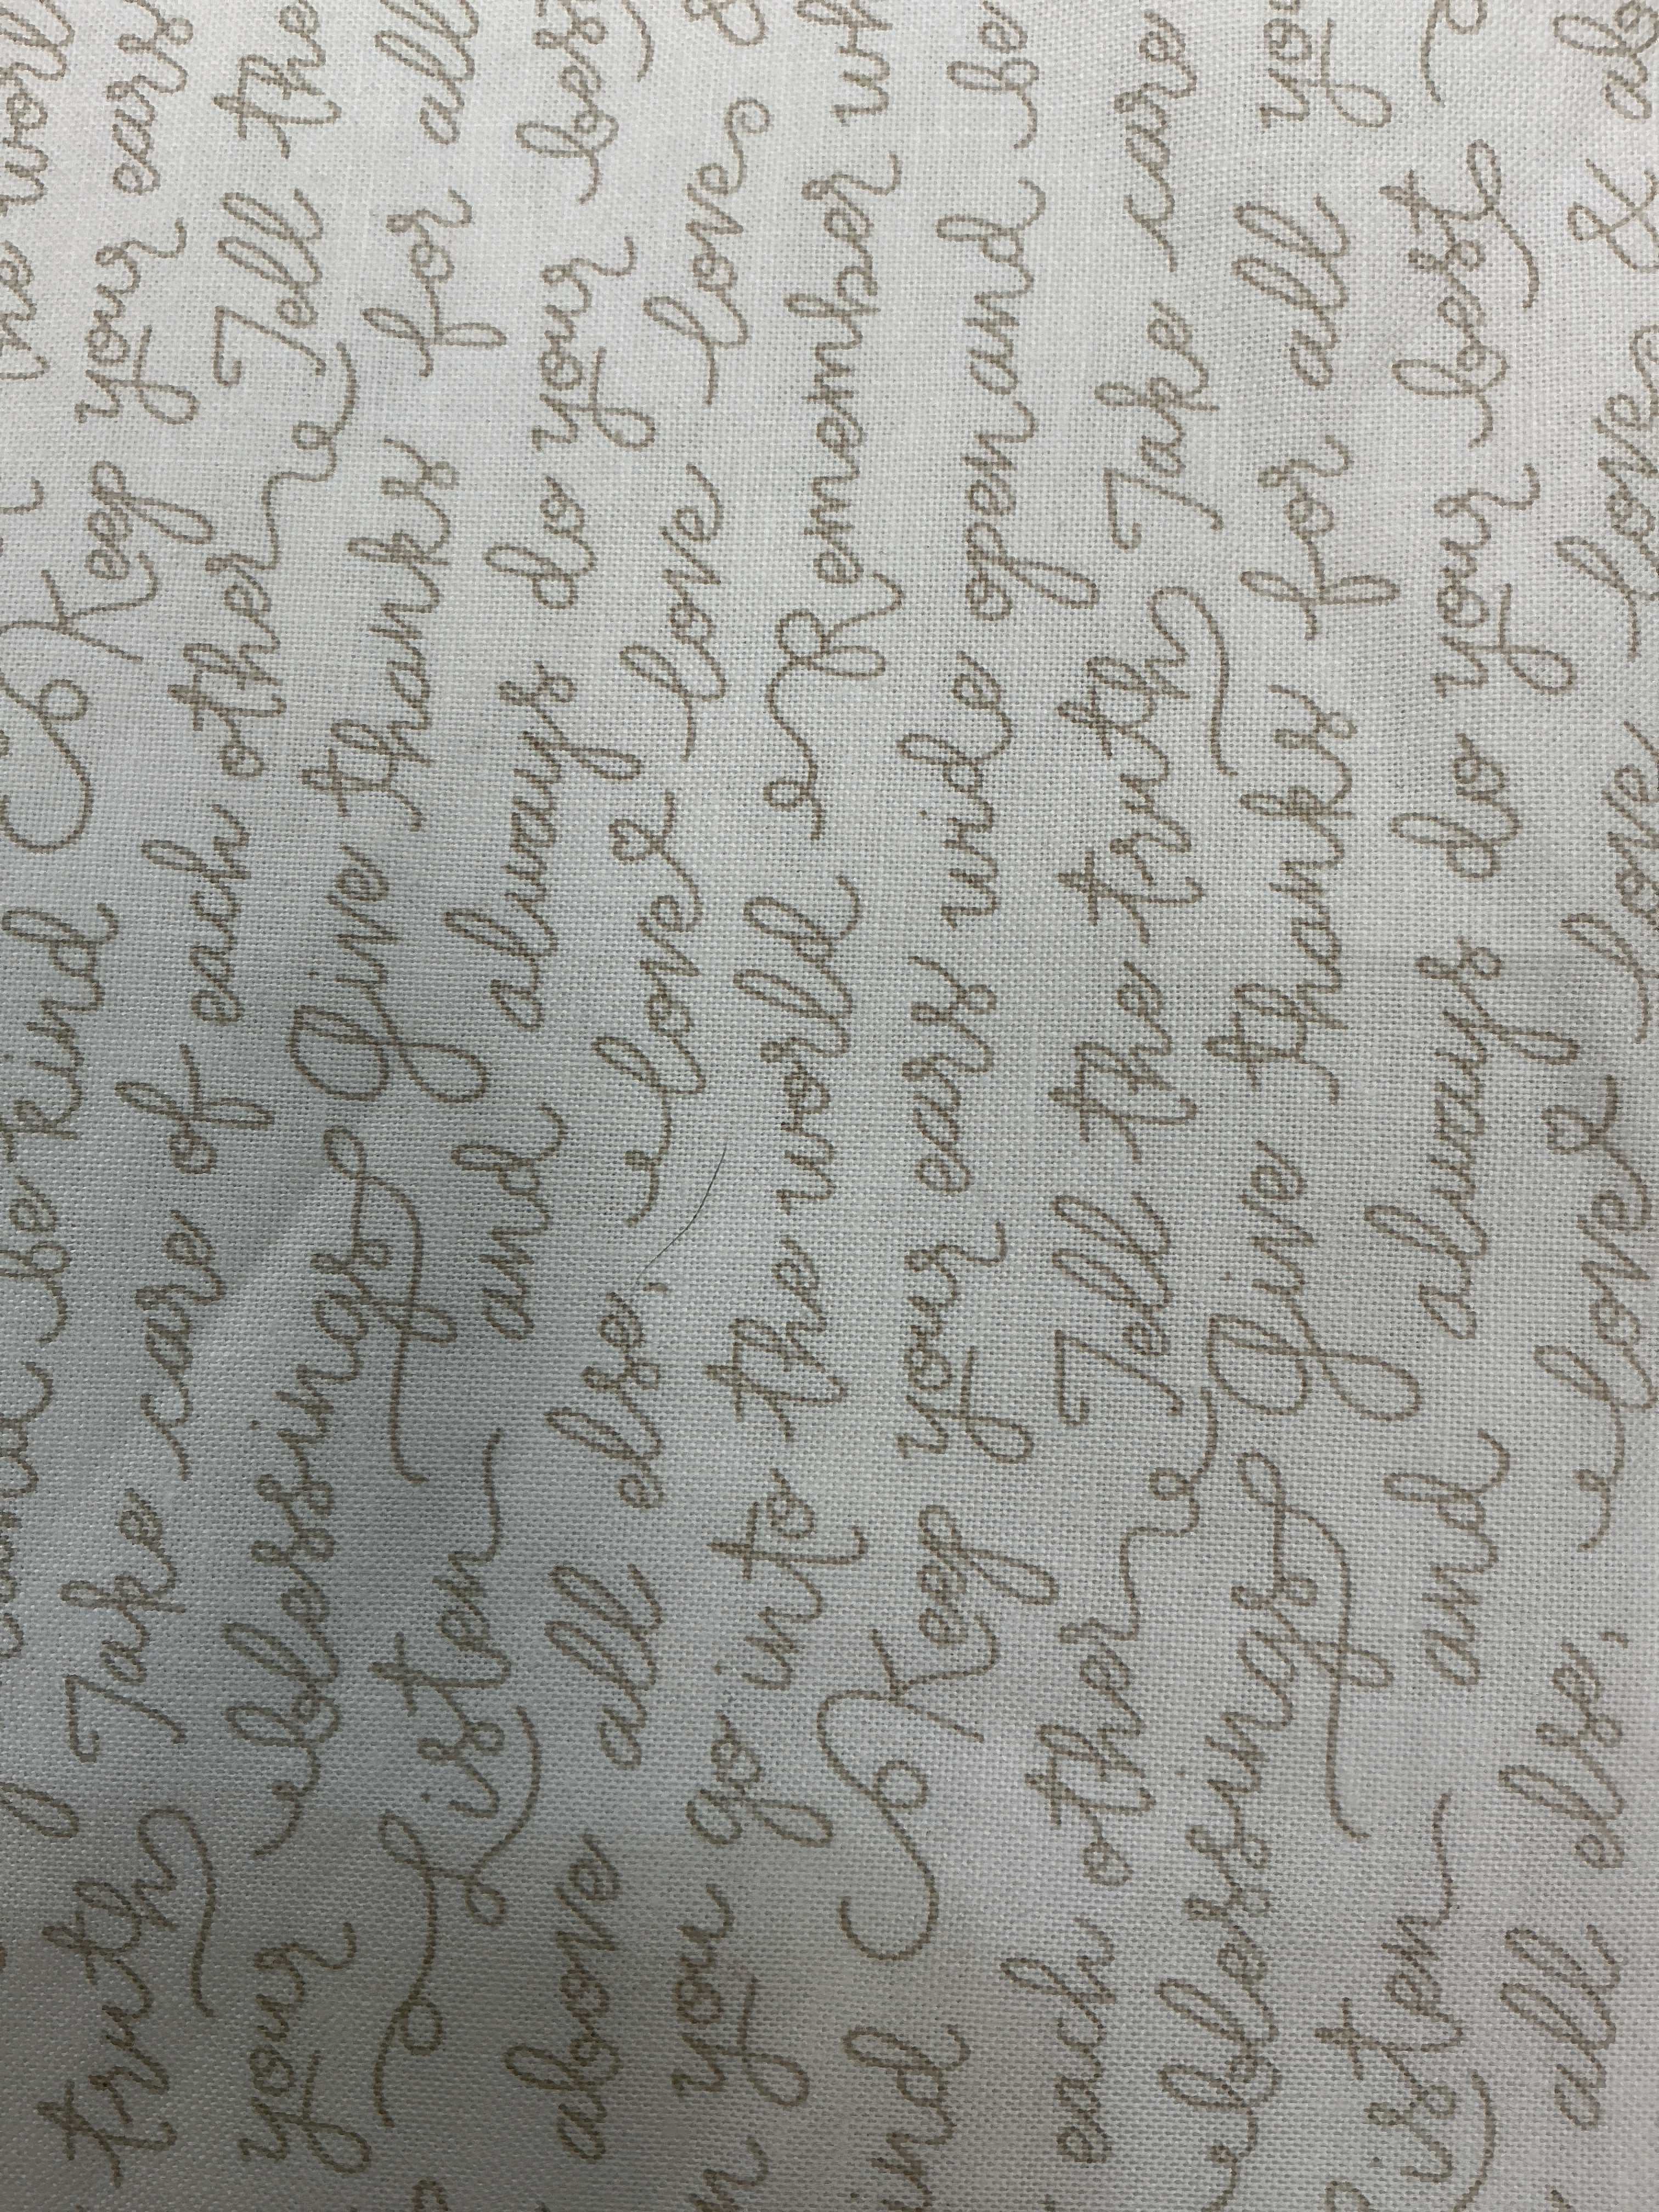 the worl
and be kind Keep your ears
truth Take care of each other Tell the
your blessings Give thanks for all
Listen and always do your best
above all else, love & love love &
you go into the world Remember wh
ind Keep your ears wide open and be
each other Tell the truth Take care
blessings Give thanks for all you
isten and always do your best
all else, love & love love & ab